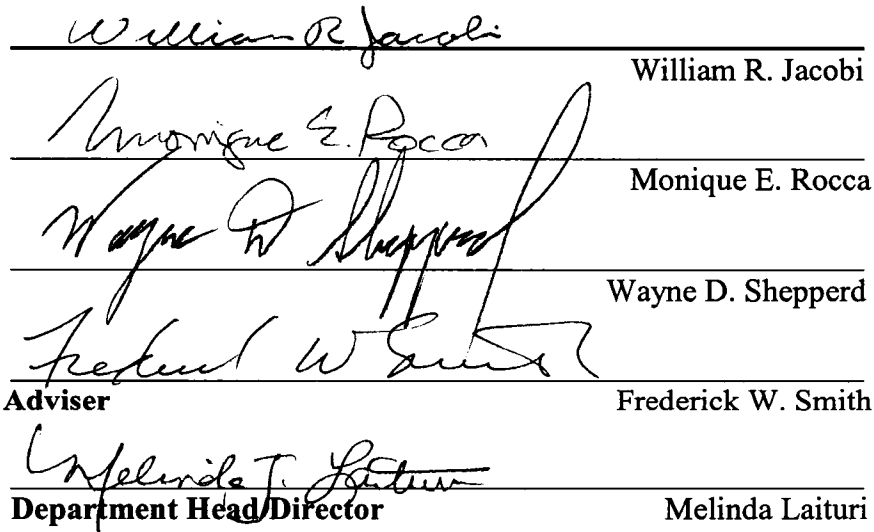 William R Jacobi
William R. Jacobi
Monique E. Rocca
Monique E. Rocca
Wayne D Shepperd
Wayne D. Shepperd
Frederick W Smith
Adviser Frederick W. Smith
Melinda J. Laituri
Department Head/Director Melinda Laituri